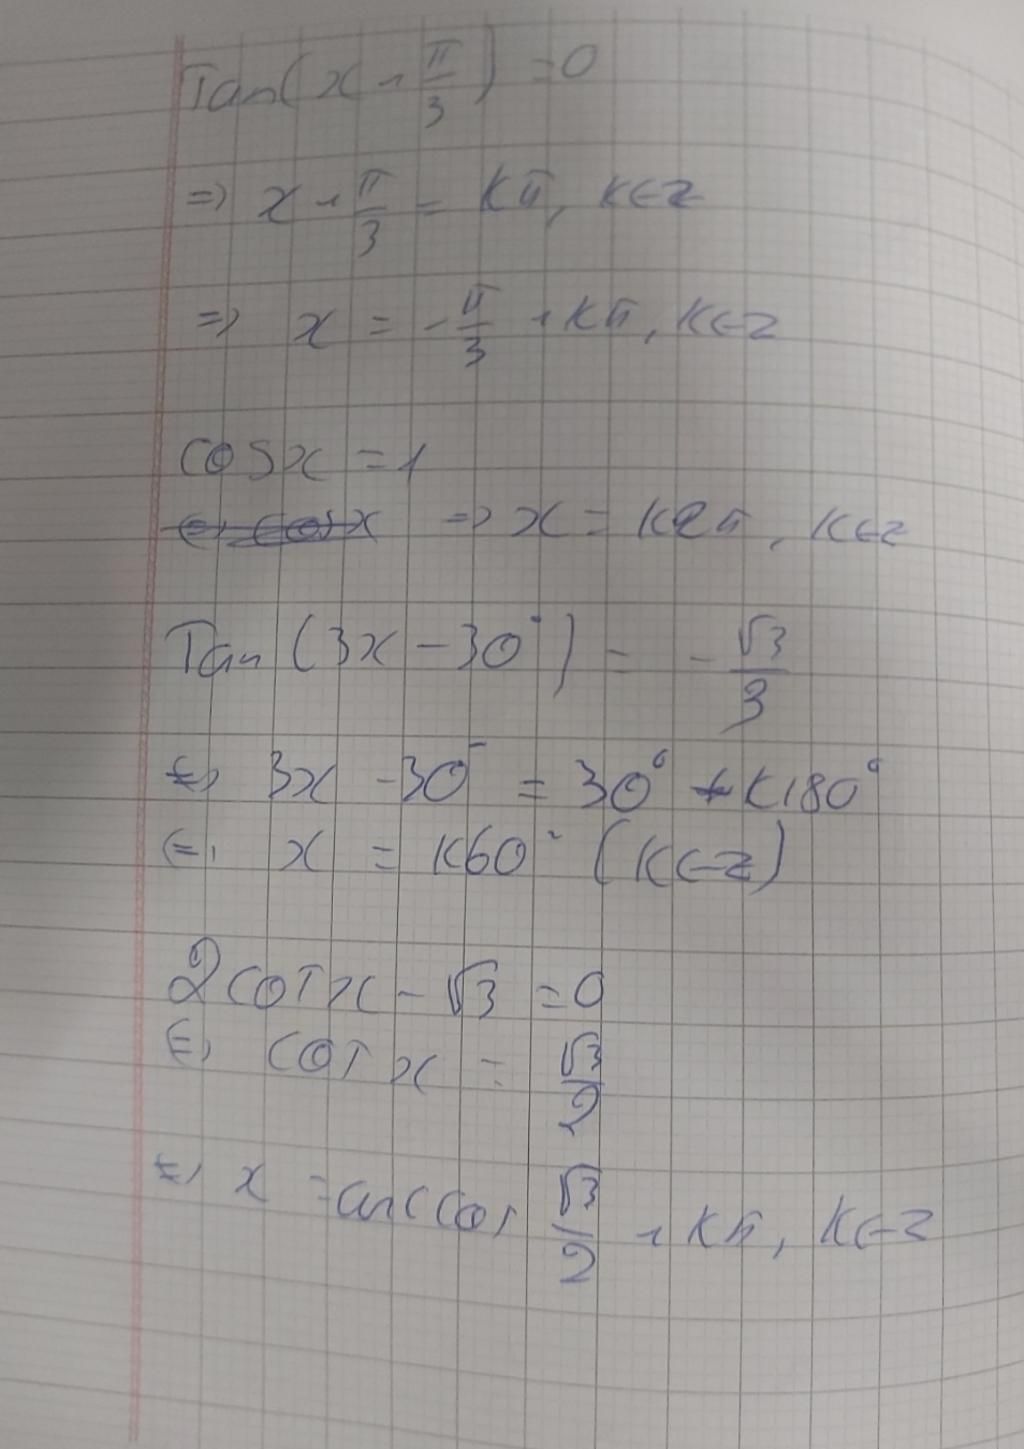 Tan(x + π/3) = 0
=> x + π/3 = kπ, k∈Z
=> x = -π/3 + kπ, k∈Z
cosx = 1
=> x = k2π, k∈Z
Tan(3x - 30°) = -√3/3
<=> 3x - 30° = 30° + k180°
<=> x = k60° (k∈Z)
2cotx - √3 = 0
<=> cot x = √3/2
<=> x = arccot √3/2 + kπ, k∈Z